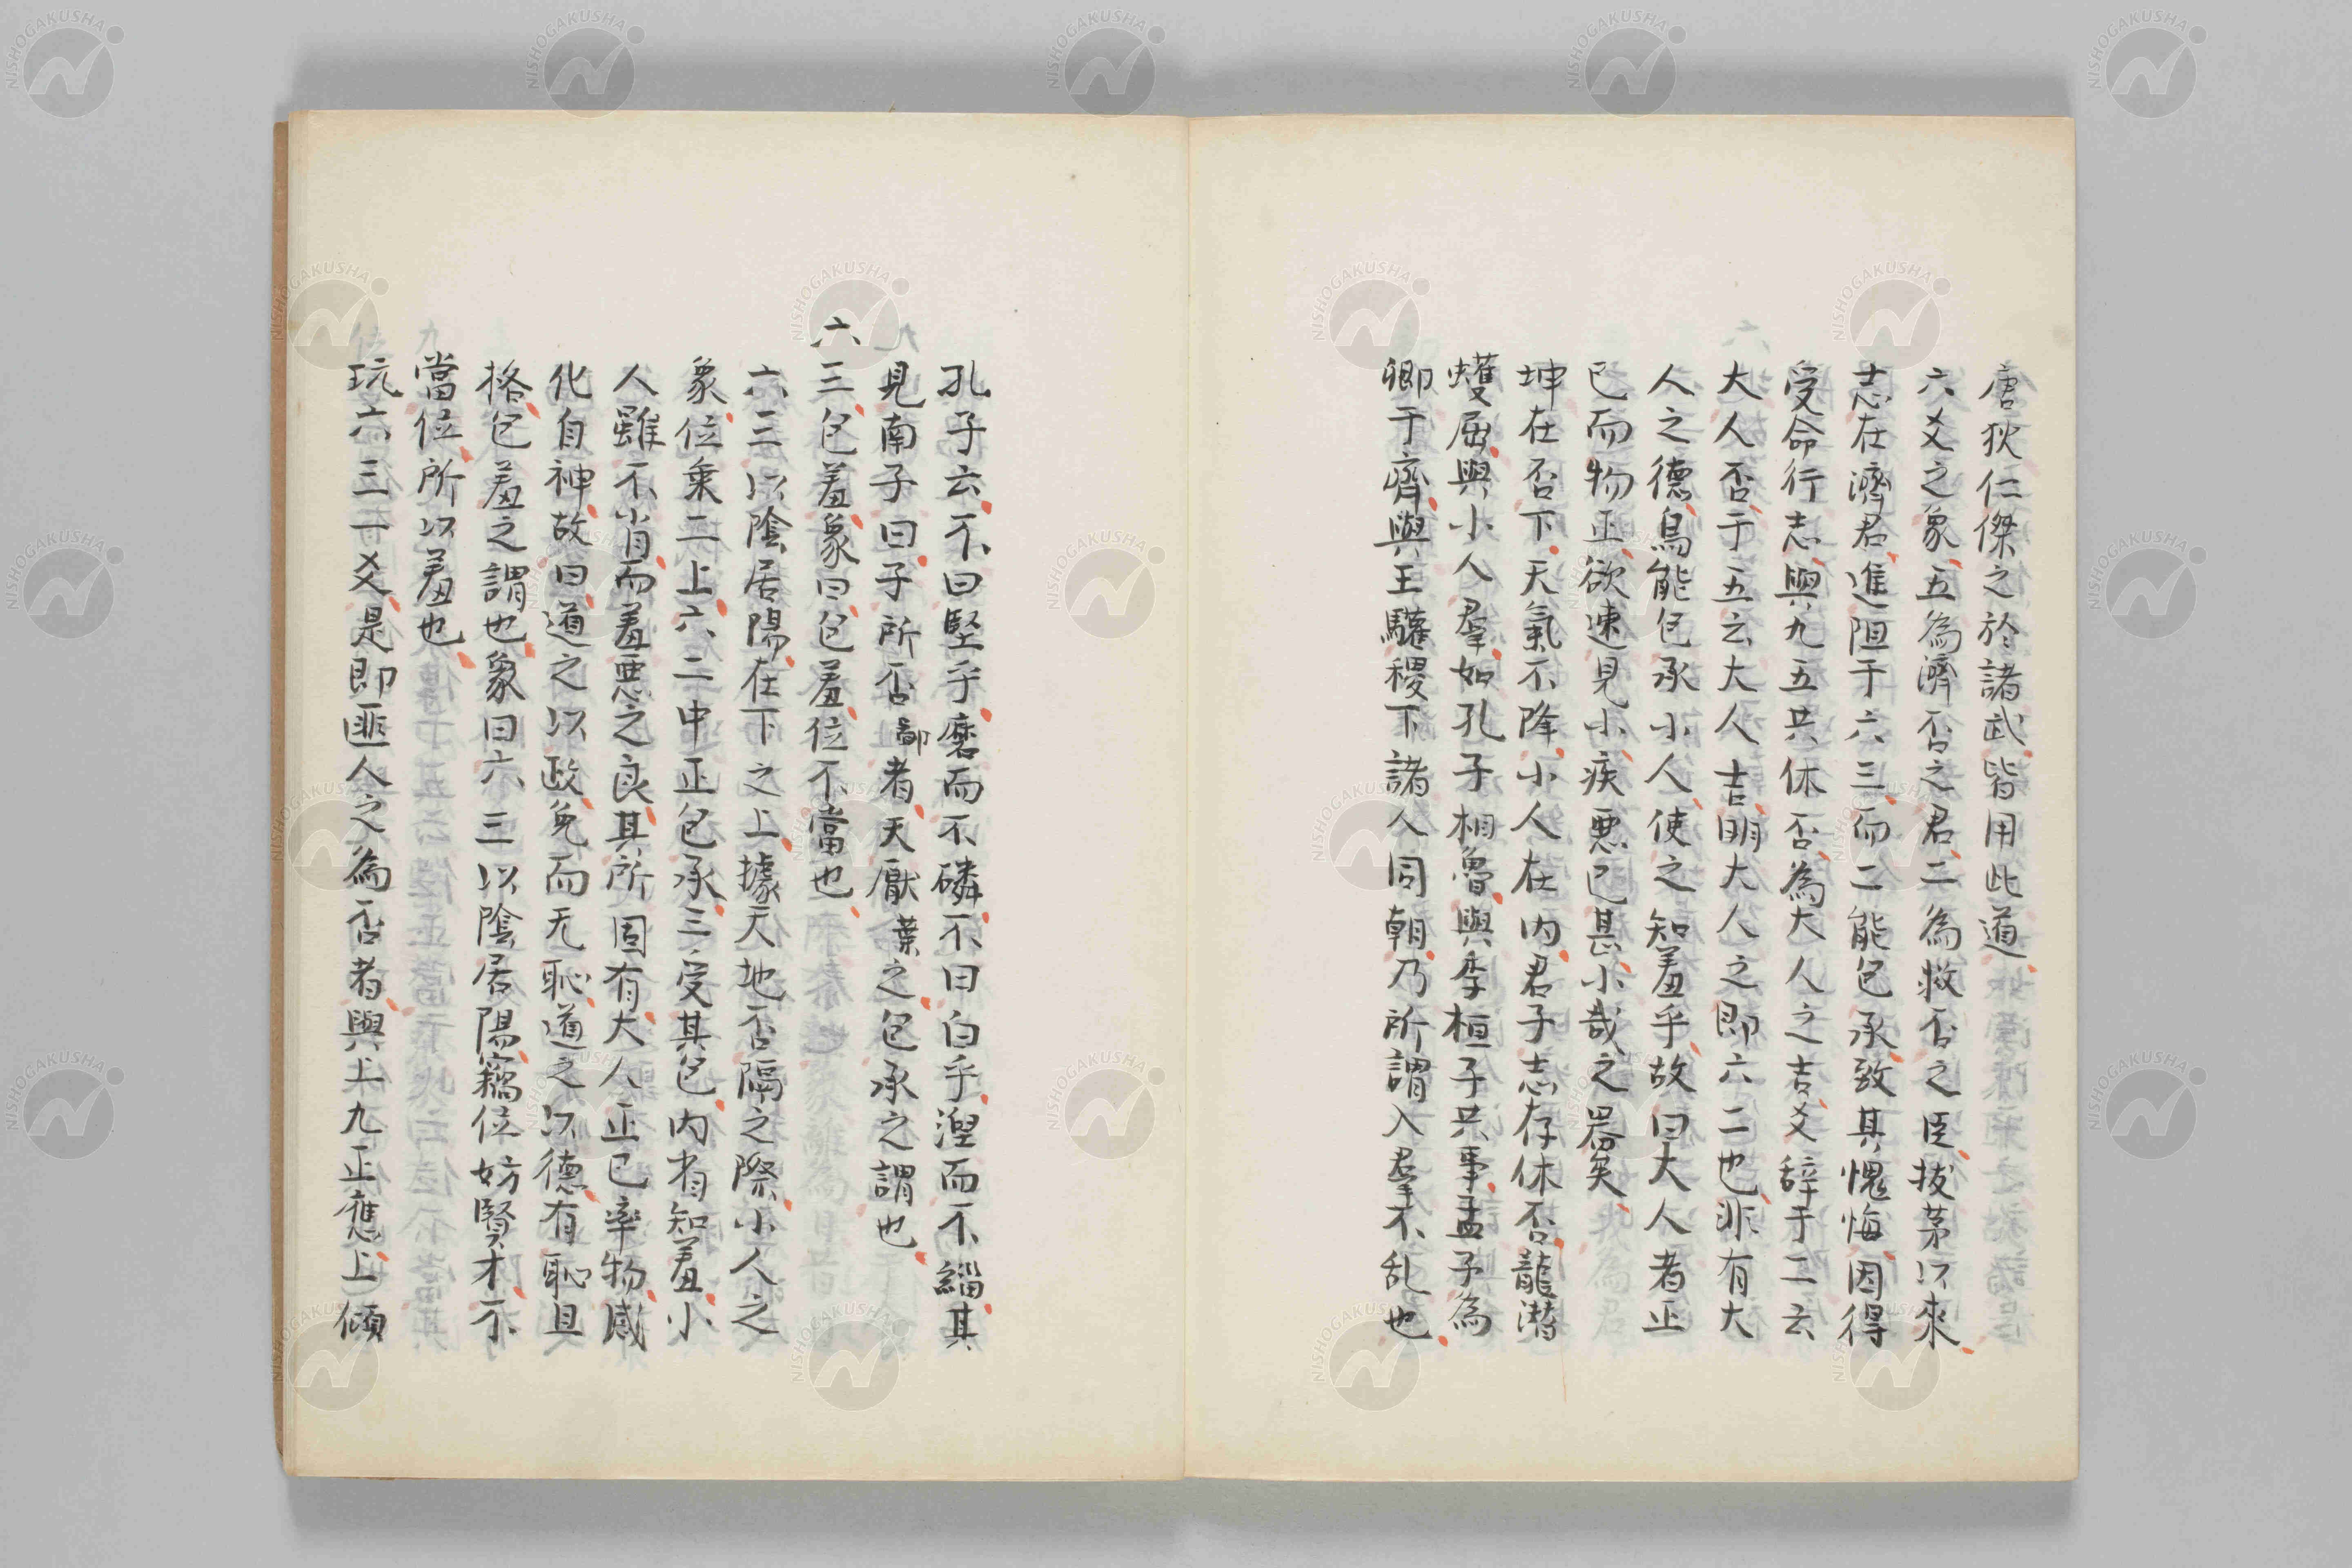 唐狄仁傑之於諸武皆用此道
六爻之象五為濟否之君二為救否之臣拔茅以來
志在濟君進阻于六三而二能包承致其愧悔因得
受命行志與九五共休否為大人之吉爻辞于二云
大人否于五云大人吉明大人之即六二也非有大
人之德烏能包承小人使之知羞乎故曰大人者正
已而物正欲速見小疾悪已甚小哉之器矣
坤在否下天氣不降小人在内君子志存休否龍潛
蠖屈與小人羣如孔子相魯與季桓子共事孟子為
卿于齊與王驩稷下諸人同朝乃所謂入羣不乱也
孔子云不曰堅乎磨而不磷不曰白乎涅而不緇其
見南子曰子所否鄙者天厭棄之包承之謂也
六三包羞象曰包羞位不當也
六三以陰居陽在下之上據天地否隔之際小人之
象位乗二上六二中正包承三受其包内省知羞小
人雖不肖而羞悪之良其所固有大人正已率物感
化自神故曰道之以政免而无恥道之以德有恥且
格包羞之謂也象曰六三以陰居陽竊位妨賢才不
當位所以羞也
玩六三一爻是即匪人之為否者與上九正應上傾
NISHOGAKUSHA